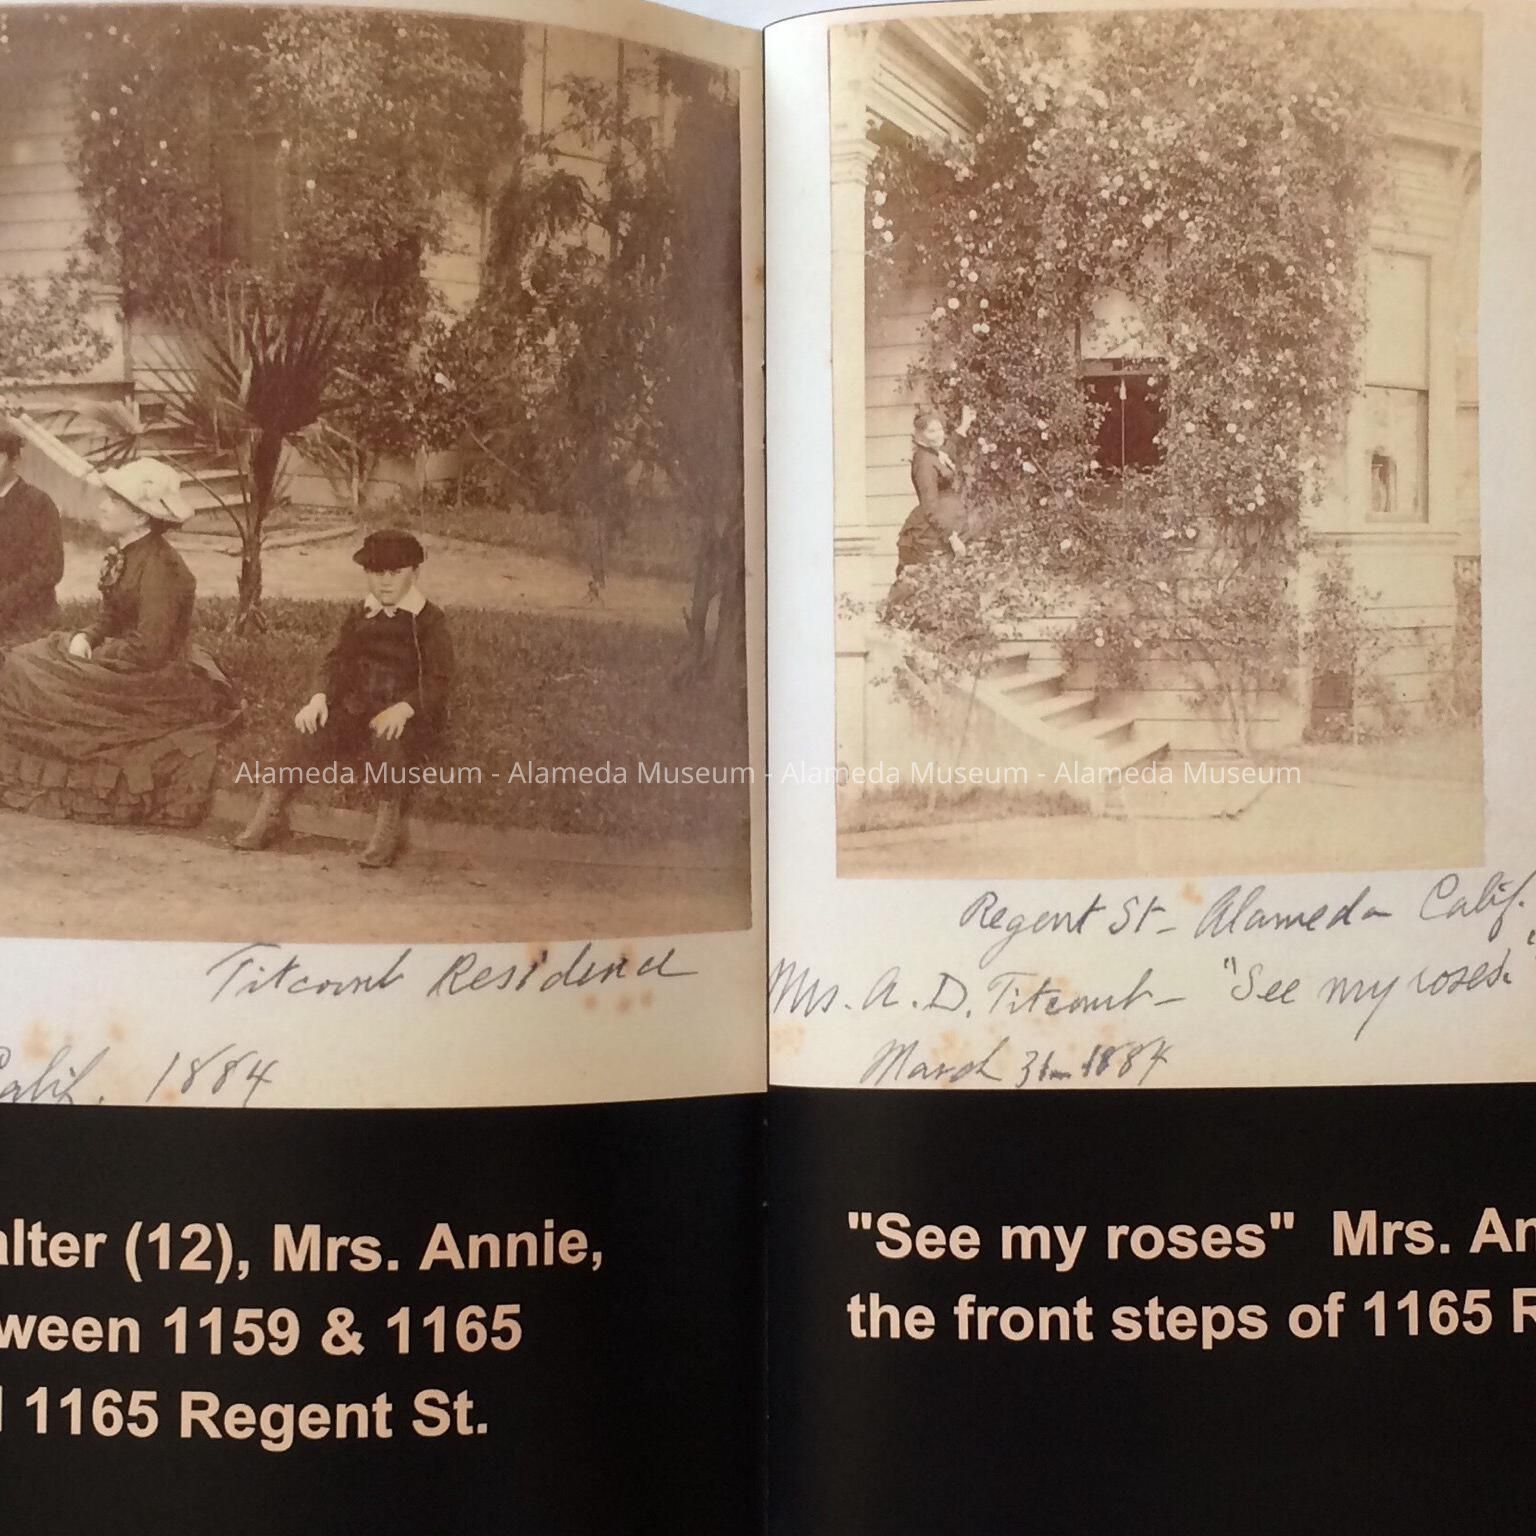 Titcomb Residence
Calif. 1884
alter (12), Mrs. Annie,
ween 1159 & 1165
1165 Regent St.
Regent St- Alameda Calif.
Mrs. A. D. Titcomb- "See my roses."
March 31- 1884
"See my roses" Mrs. An
the front steps of 1165 R
Alameda Museum - Alameda Museum - Alameda Museum - Alameda Museum